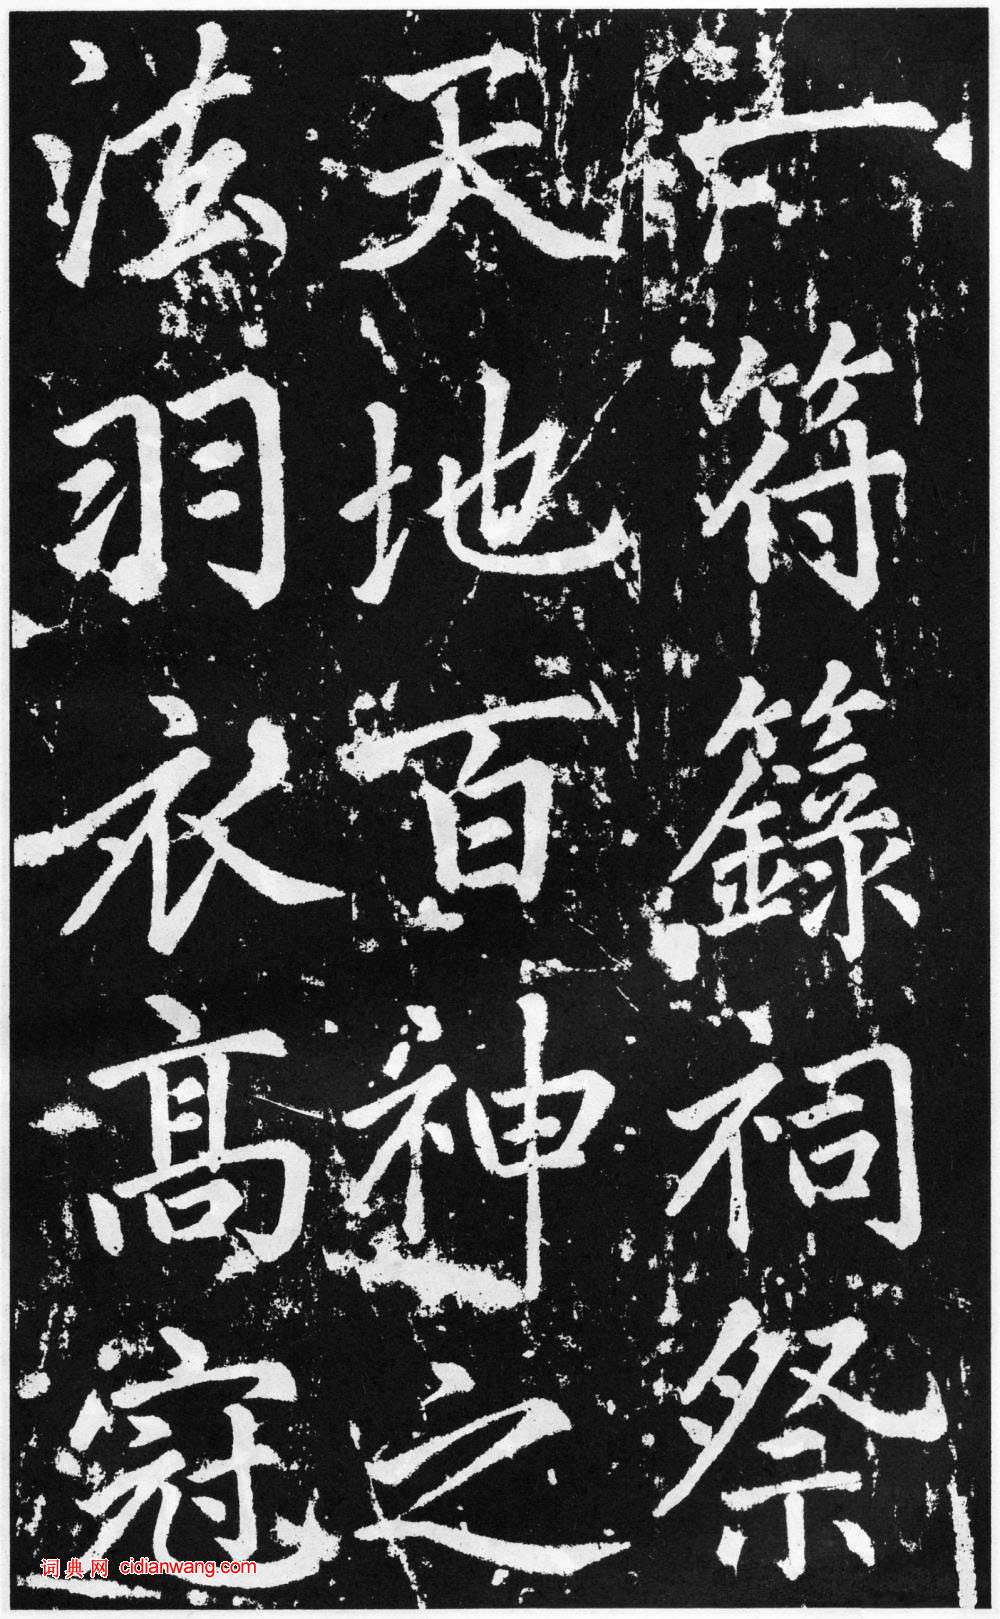 符籙祠祭
天地百神之
法羽衣高冠
词典网 cidianwang.com